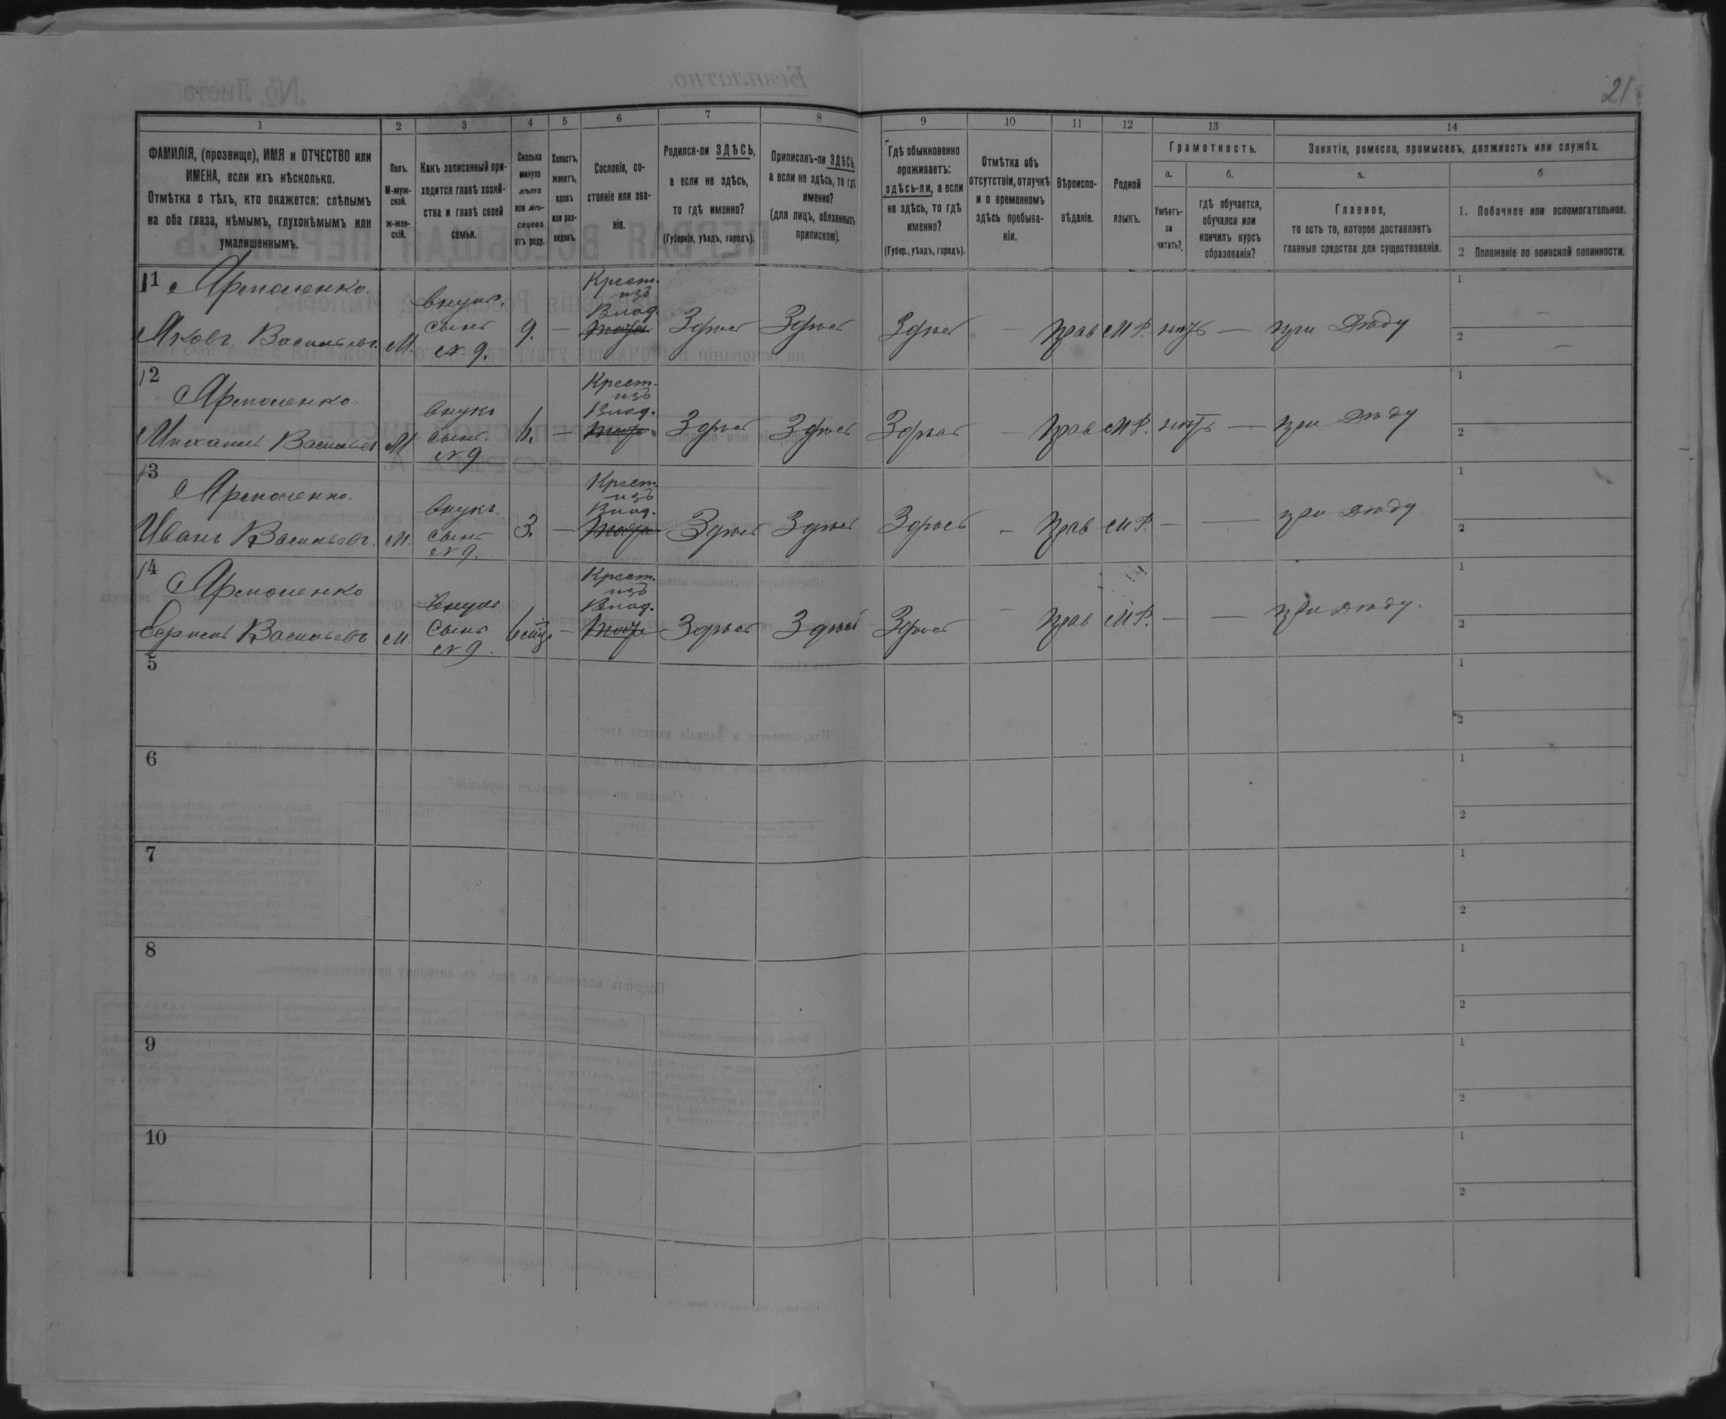 21
1 2 3 4 5 6 7 8 9 10 11 12 13 14
ФАМИЛІЯ, (прозвище), ИМЯ и ОТЧЕСТВО или
ИМЕНА, если ихъ нѣсколько.
Отмѣтка о тѣхъ, кто окажется: слѣпымъ
на оба глаза, нѣмымъ, глухонѣмымъ или
умалишеннымъ.
Полъ.
М-муж-
ской.
ж-жен-
скій.
Какъ записанный при-
ходится главѣ хозяй-
ства и главѣ своей
семьи.
Сколько
минуло
лѣтъ
или мѣ-
сяцевъ
отъ роду.
Холостъ,
женатъ,
вдовъ
или раз-
веденъ.
Сословіе, со-
стояніе или зва-
ніе.
Родился-ли ЗДѢСЬ,
а если не здѣсь,
то гдѣ именно?
(Губернія, уѣздъ, городъ).
Приписанъ-ли ЗДѢСЬ,
а если не здѣсь, то гдѣ
именно?
(для лицъ, обязанныхъ
припискою).
Гдѣ обыкновенно
проживаетъ:
здѣсь-ли, а если
не здѣсь, то гдѣ
именно?
(Губер., уѣздъ, городъ).
Отмѣтка объ
отсутствіи, отлучкѣ
и о временномъ
здѣсь пребыва-
ніи.
Вѣроиспо-
вѣданіе.
Родной
языкъ.
Грамотность.
а. б.
Умѣетъ-
ли
читать?
гдѣ обучается,
обучался или
кончилъ курсъ
образованія?
Занятіе, ремесло, промыселъ, должность или служба.
а. б
Главное,
то есть то, которое доставляетъ
главныя средства для существованія.
1. Побочное или вспомогательное.
2 Положеніе по воинской повинности.
11 Ярмоленко
Яковъ Васильевъ М. внукъ. сынъ №9. 9. — Крест. изъ Влад. Здѣсь Здѣсь Здѣсь — Прав М.Р. нѣтъ — при дѣду 1 — 2 —
12 Ярмоленко
Михаилъ Васильевъ М. внукъ сынъ №9 — Крест. изъ Влад. Здѣсь Здѣсь Здѣсь — Прав М.Р. нѣтъ — при дѣду 1 2
13 Ярмоленко.
Иванъ Васильевъ. М. внукъ сынъ №9. 3. — Крест. изъ Влад. Здѣсь Здѣсь Здѣсь — Прав М.Р. — — при дѣду 1 2
14 Ярмоленко
Сергѣй Васильевъ М внукъ сынъ №9. — Крест. изъ Влад. Здѣсь Здѣсь Здѣсь — Прав М.Р. — — при дѣду. 1 2
5 1 2
6 1 2
7 1 2
8 1 2
9 1 2
10 1 2